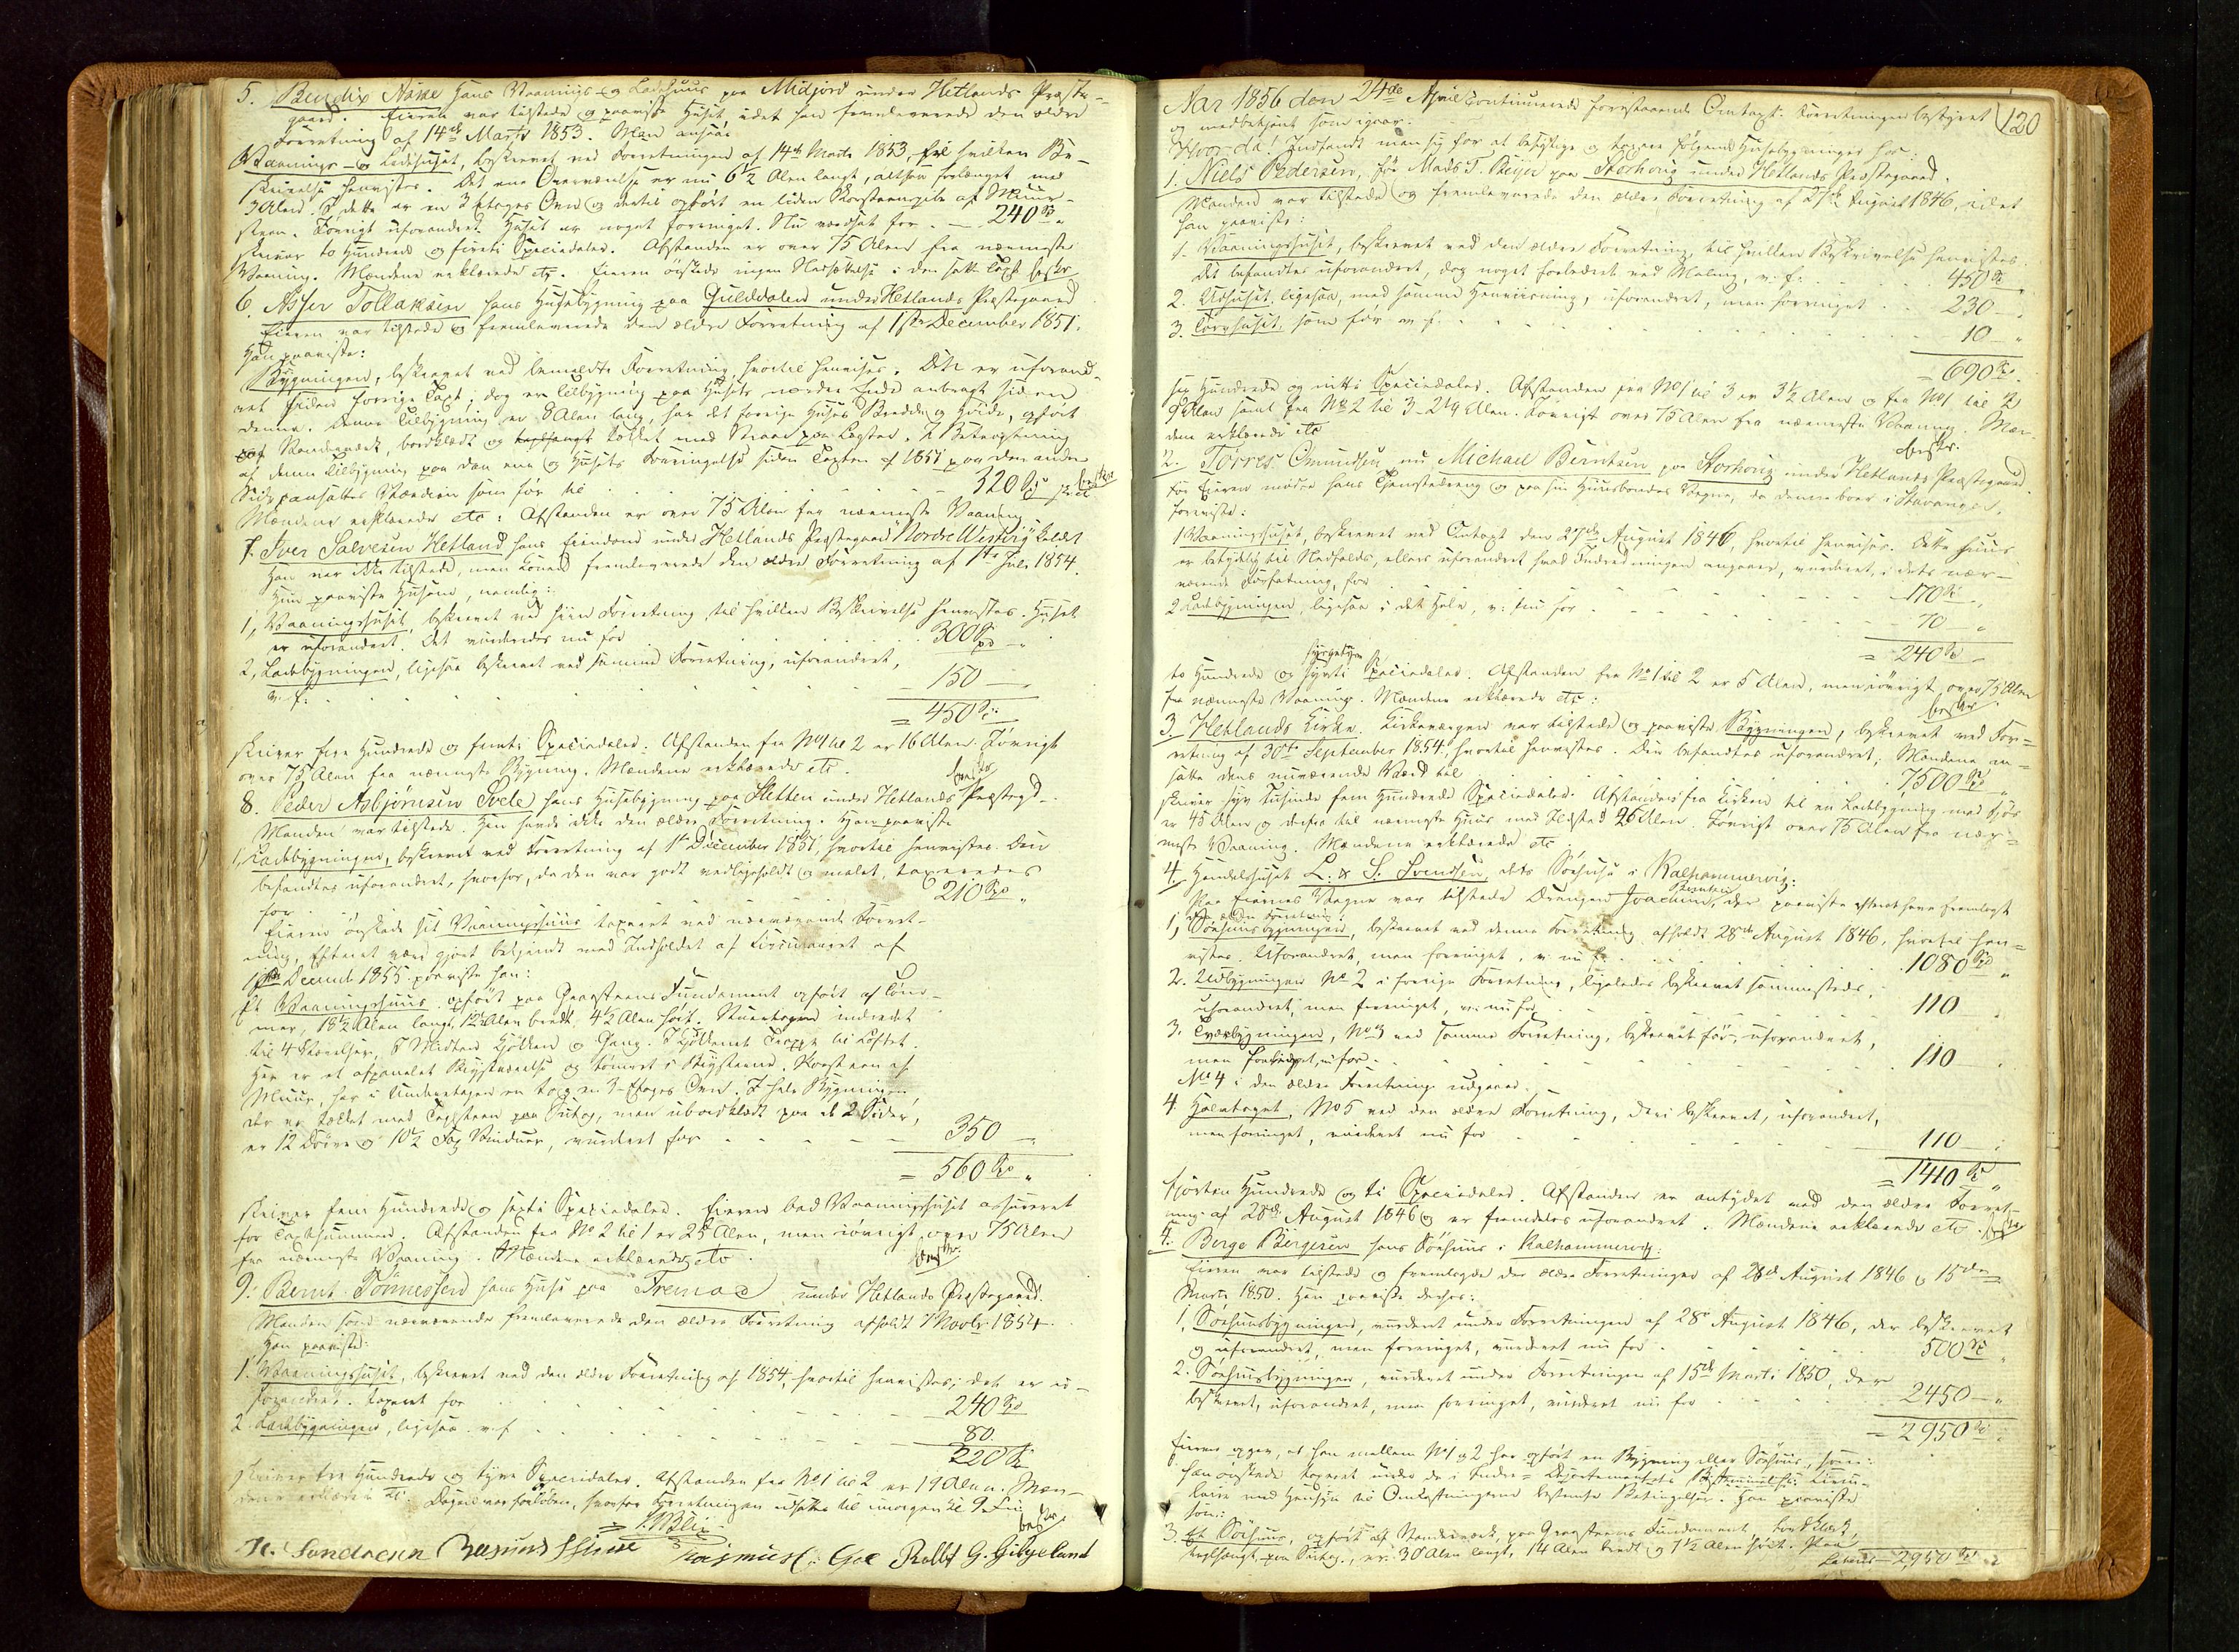 5. Bendix Nåske hans Vaanings- og Ladehuus paa Midjord under Hetlands Præste-
gaard. Eieren var tilstede og paaviste Huset, idet han fremleverede den ældre
Forretning af 14de Marts 1853. Man ansaae
Vaanings- og Ladehuset, beskrevet ved Forretningen af 14de Marts 1853, til hvilken Be-
skrivelse henvises. Det ene Overværelse er nu 6½ Alen langt, altsaa forlænget med
3 Alen. I dette er en 3 Etages Ovn og dertil opført en liden Skorsteenspibe af Muur-
steen. Iøvrigt uforandret. Huset er noget forringet. Nu værdsat for 240 Spd
skriver to Hundrede og firti Speciedaler. Afstanden er over 75 Alen fra nærmeste
Vaaning. Mændene erklærede etc. Eieren ønskede ingen Nedsættelse i den satte Taxt
6. Asser Tollaksen hans Huusebygning paa Gulddalen under Hetlands Præstegaard
Eieren var tilstede og fremleverede den ældre Forretning af 1ste December 1851.
Han paaviste:
Bygningen, beskrevet ved bemeldte Forretning, hvortil henvises. Den er uforand-
ret siden forrige Taxt; dog en Tilbygning paa Husets nordre Ende anbragt siden
denne. Denne Tilbygning er 8 Alen lang, har det forrige Huses Bredde og Høide, opført
af Bindingsværk, bordklædt og tækket med Steen paa Lægter. I Betragtning
af denne Tilbygning paa den ene og Husets Forringelse siden Taxten af 1851 paa den anden
Side ansattes Værdien som før til 320 Spd
Mændene erklærede etc: Afstanden er over 75 Alen fra nærmeste Vaaning
7. Iver Salvesen Hetland hans Eiendom under Hetlands Præstegaard Nordre Wistvig kaldet
Han var ikke tilstede, men Konen fremleverede den ældre Forretning af 1ste Juli 1854.
Hun paaviste Husene, nemlig:
1, Vaaningshuset, beskrevet ved hiin Forretning, til hvilken Beskrivelse henvises. Huset
er uforandret. Det vurderedes nu for 300 Spd
2, Ladebygningen, ligesaa beskrevet ved samme Forretning, uforandret,
v. f. 150
= 450 Spd
skriver fire Hundrede og femti Speciedaler. Afstanden fra No 1 til 2 er 16 Alen. Iøvrigt
over 75 Alen fra nærmeste Bygning. Mændene erklærede etc.
8. Peder Asbjørnsen Svele hans Huusebygning paa Sletten under Hetlands Præstegd.
Manden var tilstede. Han havde ikke den ældre Forretning. Han paaviste
1, Ladebygningen, beskrevet ved Forretning af 1ste December 1851, hvortil henvises. Den
befandtes uforandret, hvorfor, da den var godt vedligeholdt og malet, taxeredes
for 210 Spd
Eieren ønskede sit Vaaningshuus taxeret ved nærværende Forret-
ning, Efteret være gjort bekjendt med Indholdet af Circulairet af
1ste Decemb 1855 paaviste han:
Et Vaaningshuus, opført paa Graasteens Fundament opført af Tøm-
mer, 18½ Alen langt, 12½ Alen bredt, 4½ Alen høit. Stueetagen indrettet
til 4 Værelser, I Midten Kjøkken og Gang. I Kjøkkenet Trappe til Loftet.
Muur, har i Underetagen en to og en 3-Etages Ovn.
der er tækket med Tagsteen paa Sutag, men ubordklædt paa de 2 Sider,
er 12 Døre og 10½ Fag Vinduer, vurderet for 350
= 560 Spd
skriver fem Hundrede og sexti Speciedaler. Eieren bad Vaaningshuset assureret
for Taxtsummen. Afstanden fra No 2 til 1 er 25 Alen, men iøvrigt over 75 Alen
fra nærmeste Vaaning. Mændene erklærede etc.
9. Bernt Tönnessen hans Huse paa "Fremad" under Hetlands Præstegaard.
Manden som nærværende fremleverede den ældre Forretning afholdt 7 Novbr 1854.
Han paaviste:
1. Vaaningshuset, beskrevet ved den ældre Forretning af 1854, hvortil henvises; det er u-
forandret. taxeret for 240 Spd
2. Ladebygningen, ligesaa v. f. 80.
320 Spd
skriver tre Hundrede og tyve Speciedaler. Afstanden fra No 1 til 2 er 19 Alen. Mæn-
dene erklærede etc. Dagen var forløben, hvorfor Forretningen udsattes til imorgen Kl 9
Blix
Sondresen Rasmus Rasmus Gee Rolf G. Gilgeland
120
Aar 1856 den 24de April continuerede forestaaende Omtaxt. Forretningen bestyret
og medbetjent som igaar.
Hvor da! Indfandt man sig for at besigtige og taxere følgende Husebygninger hos:
1. Niels Pedersen, før Mads T. Beyer paa Storhoug under Hetlands Præstegaard.
Manden var tilstede og fremleverede den ældre Forretning af 27de August 1846, idet
han paaviste:
1. Vaaningshuset, beskrevet ved den ældre Forretning til hvilken Beskrivelse henvises.
Det befandtes uforandret, dog noget forbedret ved Maling, v. f. 450 Spd
2. Udhuset, ligesaa, med samme Henviisning, uforandret, men forringet 230
3. Torvhuset, som før v. f. 10
= 690 Spd
sex Hundrede og nitti Speciedaler. Afstanden fra No 1 til 3 er 3½ Alen og fra No 1 til 2
9 Alen samt fra No 2 til 3 - 2¼ Alen. Iøvrigt over 75 Alen fra nærmeste Vaaning. Mæn-
dene erklærede etc
2. Torres Omundsen nu Michael Berntsen paa Storhoug under Hetlands Præstegaard.
For Eieren mødte hans Tjenestedreng og paa sin Huusbondes Vegne, da denne boer i Stavanger,
foreviste:
1 Vaaningshuset, beskrevet ved Omtaxt den 27de August 1846, hvortil henvises. Dette Huus
er betydelig til Nedfalds, ellers uforandret hvad Indredningen angaaer, vurderet, i dets nær-
værende Forfatning, for 170 Spd
2 Ladebygningen, ligesaa i det Hele, v. nu for 70
= 240 Spd
to Hundrede og fyrti Speciedaler. Afstanden fra No 1 til 2 er 5 Alen, men iøvrigt over 75 Alen
fra nærmeste Vaaning. Mændene erklærede etc:
3. Hetlands Kirke. Kirkeværgen var tilstede og paaviste Bygningen, beskrevet ved For=
retning af 30te September 1854, hvortil henvises. Den befandtes uforandret; Mændene an=
satte dens nuværende Værd til 7500 Spd
skriver syv Tusinde fem Hundrede Speciedaler. Afstanden fra Kirken til en Ladebygning med Fjøs
er 45 Alen og derfra til nærmeste Huus med Ildsted 26 Alen. Iøvrigt over 75 Alen fra nær=
meste Vaaning. Mændene erklærede etc.
4. Handelshuset L. & S. Svendsen dets Søehuse i Kalhammervig:
Paa Eiernes Vegne var tilstede Drengen Joachim, der paaviste efteret have fremlagt
den ældre Forretning:
1, Søehuusbygningen, beskrevet ved denne Forretning afholdt 28de August 1846, hvortil hen=
vises. Uforandret, men forringet, v. nu for 1080 Spd
2. Udbygningen No 2 i forrige Forretning, ligeledes beskrevet sammesteds,
uforandret, men forringet, v. nu for 110
3. Tværbygningen, No 3 ved samme Forretning, beskrevet før, uforandret,
men forringet, v. for 110
No 4 i den ældre Forretning udgaaer.
4. Halvtaget, No 5 ved den ældre Forretning, deri beskrevet, uforandret,
men forringet, vurderet nu for 110
= 1410 Spd
fjorten Hundrede og ti Speciedaler. Afstanden er antydet ved den ældre Forret-
ning af 28de August 1846 og er fremdeles uforandret. Mændene erklærede etc.
4. Berge Bergesen hans Søehuus i Kalhammervig:
Eieren var tilstede og fremlagde de ældre Forretninger af 28de August 1846 og 15de
Marts 1850. Han paaviste derhos:
1, Søehuusbygningen, vurderet under Forretningen af 28de August 1846, der beskrevet
og uforandret, men forringet, vurderet nu for 500 Spd
2. Søehuusbygningen, vurderet under Forretningen af 15de Marts 1850, der
beskrevet, uforandret, men forringet, vurderet nu for 2450
= 2950 Spd
Eieren opgav, at han mellem No 1 og 2 har opført en Bygning eller Søehuus, som
han ønskede taxeret under de i Indre-Departementets Circu-
laire med Hensyn til Omkostningerne bestemte Betingelser. Han paaviste
som:
3. Et Søehuus, opført af Bindingsværk, paa Graasteens Fundament, bordklædt,
teglhængt paa Sutag, er 30 Alen langt, 14 Alen bredt og 7½ Alen høit.
Lateris 2950 Spd